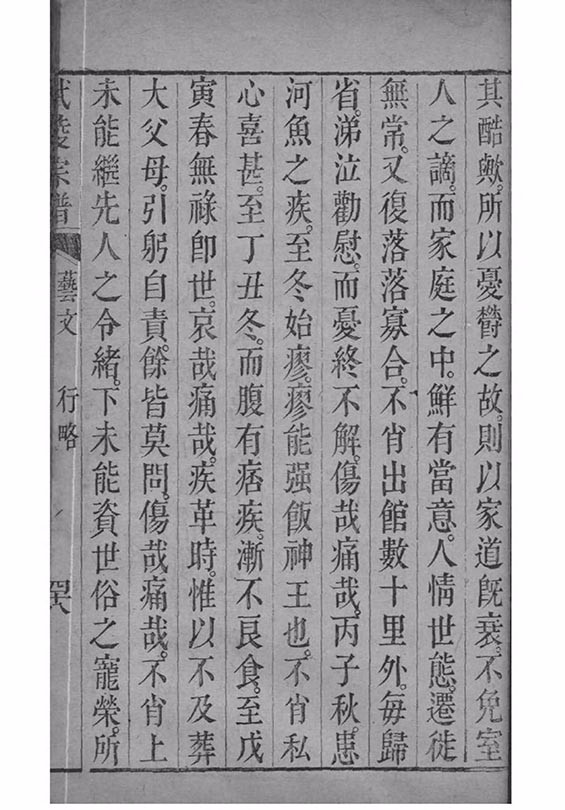 其酷歟。所以憂鬱之故。則以家道旣衰。不免室
人之謫。而家庭之中。鮮有當意。人情世態。遷徙
無常。又復落落寡合。不肖出館數十里外。每歸
省。涕泣勸慰。而憂終不解。傷哉痛哉。丙子秋。患
河魚之疾。至冬始瘳。瘳能强飯神王也。不肖私
心喜甚。至丁丑冬。而腹有痞疾。漸不良食。至戊
寅春無祿卽世。哀哉痛哉。疾革時。惟以不及葬
大父母。引躬自責。餘皆莫問。傷哉痛哉。不肖上
未能繼先人之令緒。下未能資世俗之寵榮。所
宗譜 藝文 行略